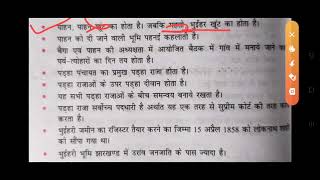 पाहन, पाहन खूंट का होता है। जबकि महतो, भूईहर खूंट का होता है।
पाहन को दी जाने वाली भूमि पहनई कहलाती है।
बैगा एवं पाहन की अध्यक्षता में आयोजित बैठक में गांव में मनाये जाने
पर्व-त्योहारों का दिन तय होता है।
पड़हा पंचायत का प्रमुख पड़हा राजा होता है।
पड़हा राजाओं के उपर पड़हा दीवान होता है।
यह सभी पड़हा राजाओं के बीच समन्वय बनाये रखता है।
पड़हा राजा सर्वोच्च पदधारी है अर्थात यह एक तरह से सुप्रीम कोर्ट की तरह
करता है।
भूईहरी जमीन का रजिस्टर तैयार करने का जिम्मा 15 अप्रैल 1858 को लोकनाथ
को सौंपा गया था।
भूईहरी भूमि झारखण्ड में उरांव जनजाति के पास ज्यादा है।